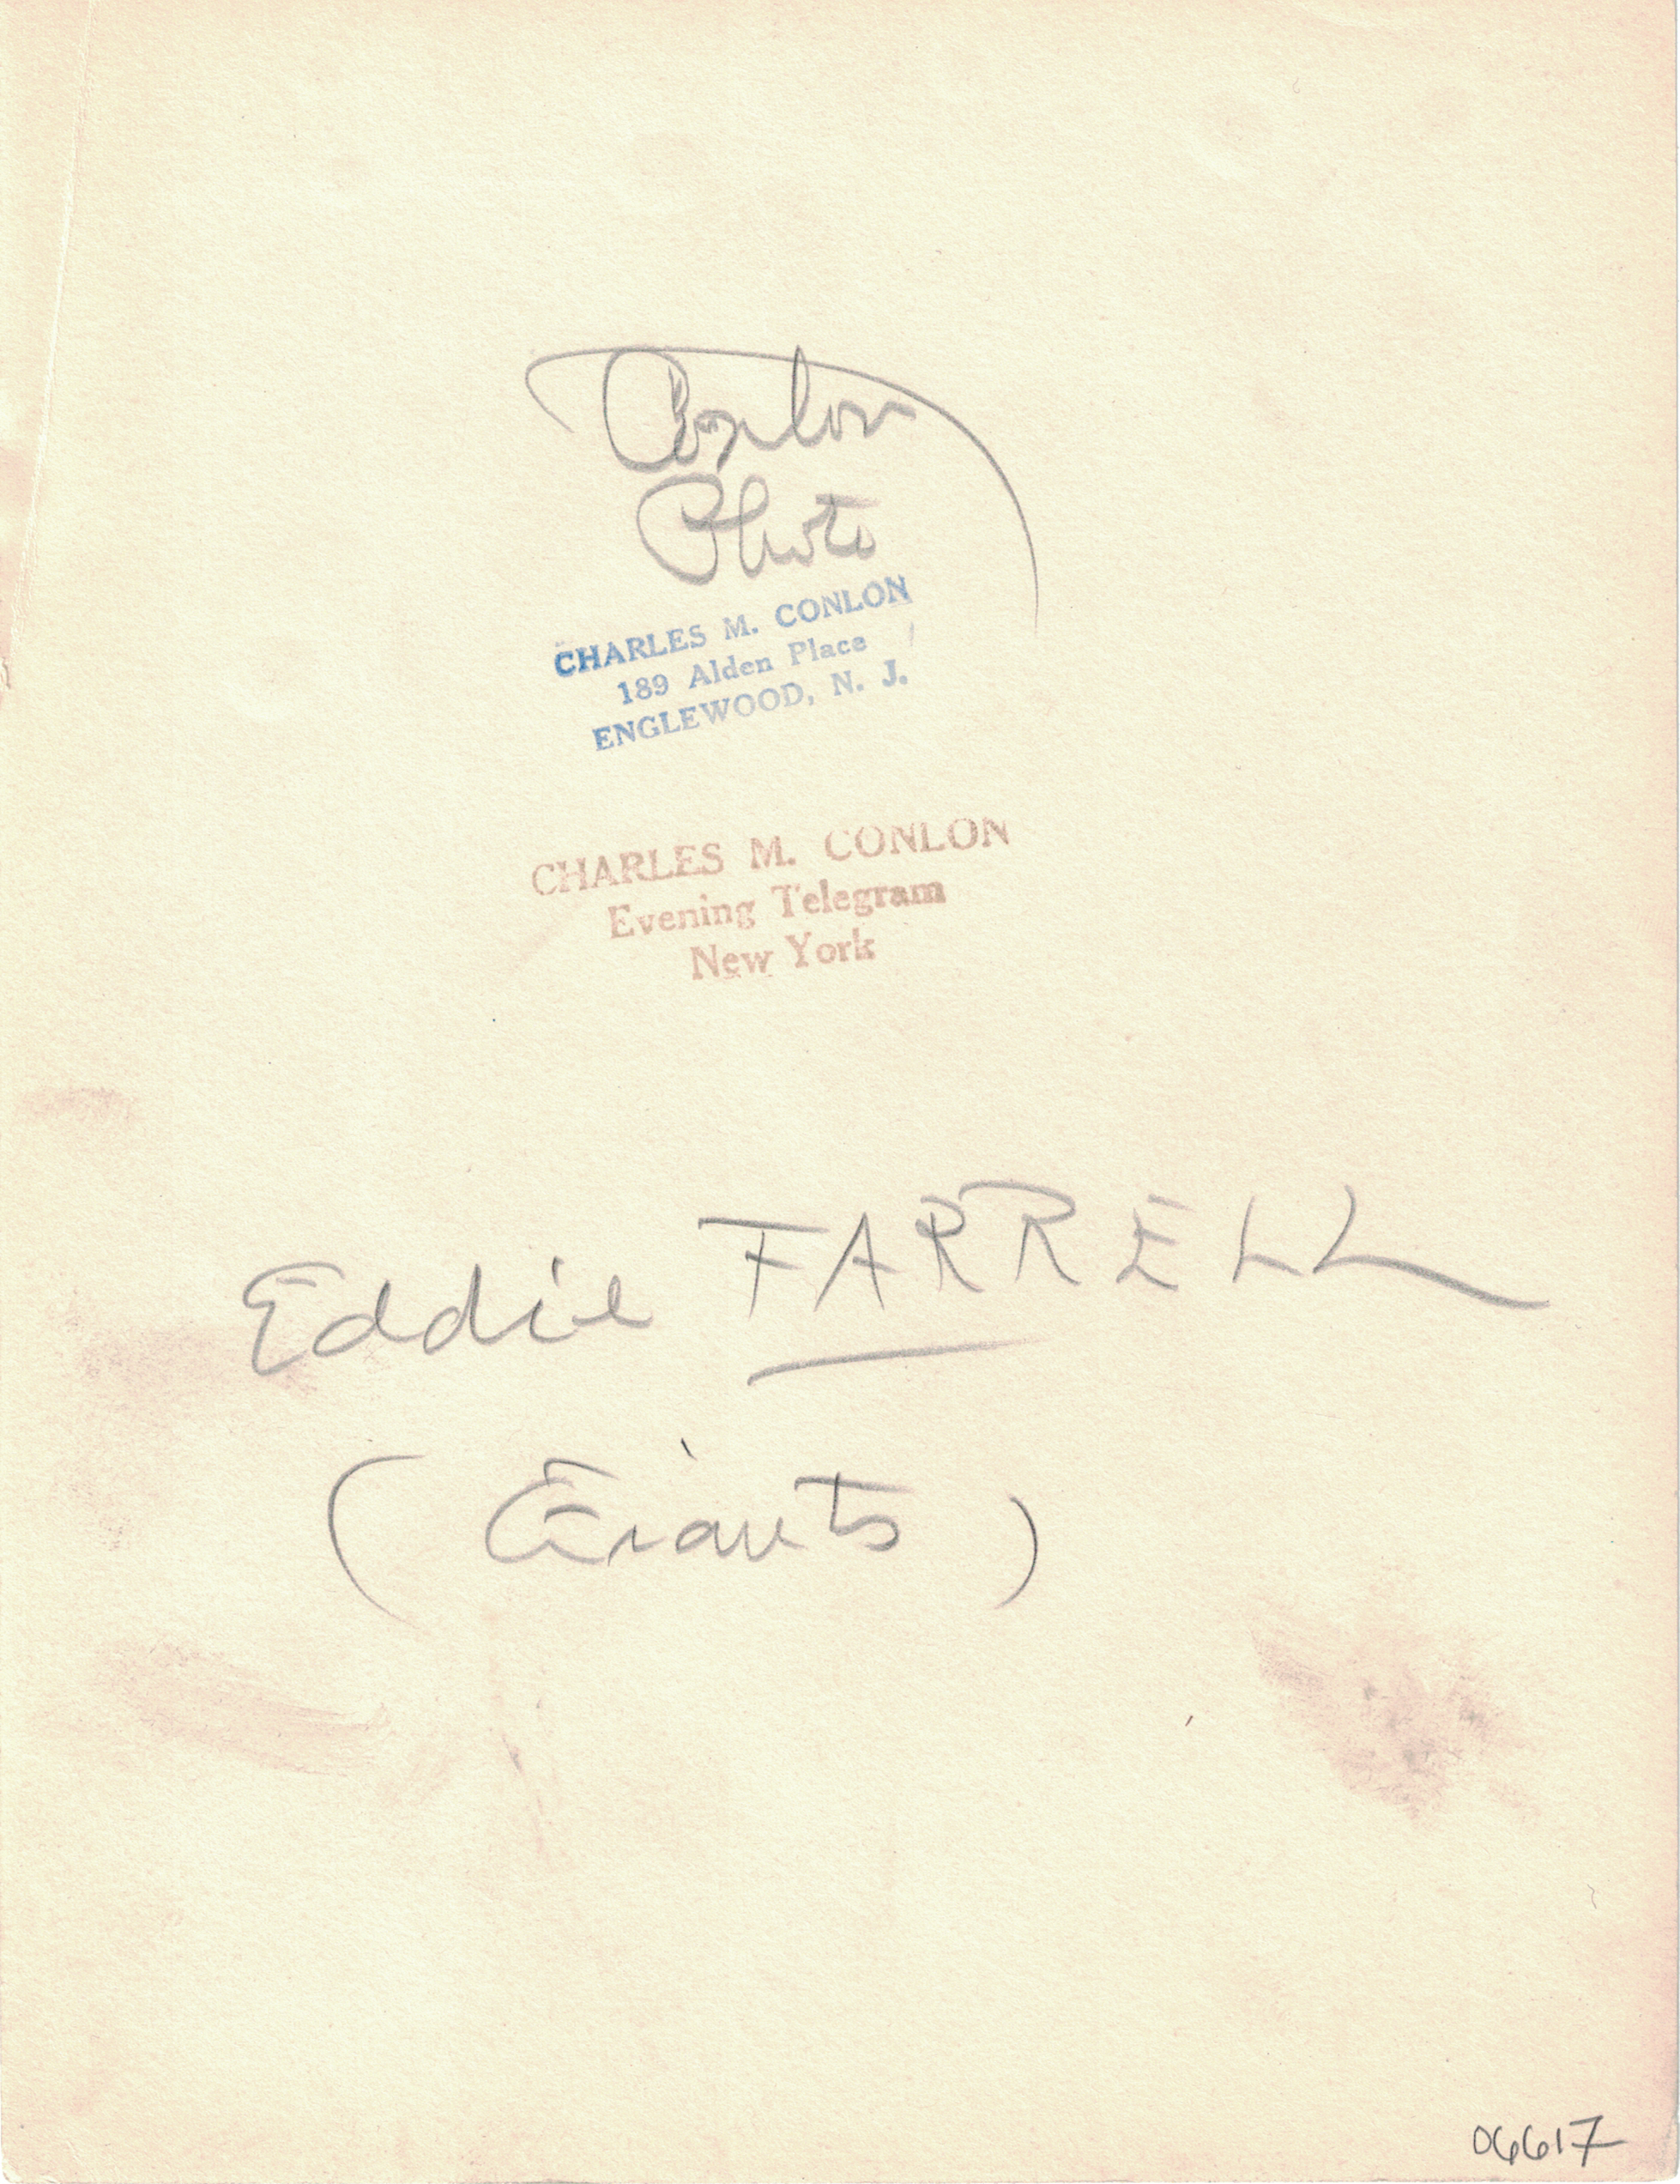 Conlon
Photo
CHARLES M. CONLON
189 Alden Place
ENGLEWOOD, N. J.
CHARLES M. CONLON
Evening Telegram
New York
Eddie FARRELL
(Giants)
06617